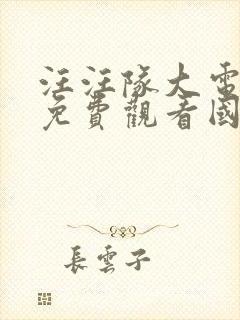 汪汪隊大電
免費觀看國
長雲子